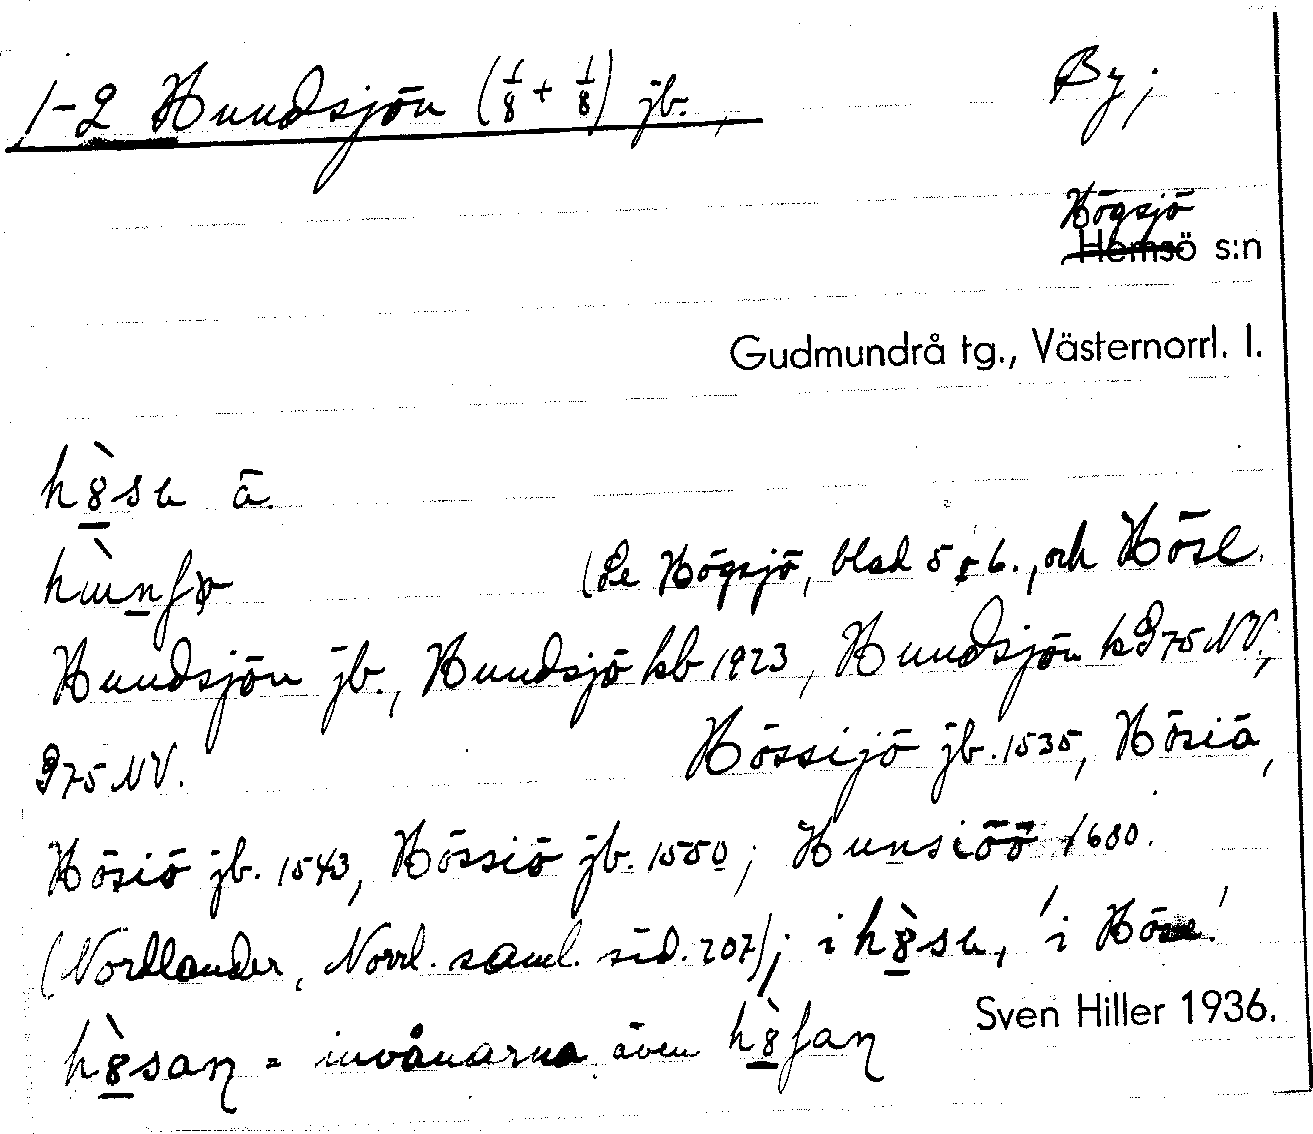 1-2 Hundsjön (1/8 + 1/8) jb., By;
Högsjö
Hemsö s:n
Gudmundrå tg., Västernorrl. l.
h8̀sɩ ä.
(Se Högsjö, blad 5 & 6., och Hösl.
Hundsjön jb., Hundsjö kb 1923, Hundsjön k 975 NV,
975 NV. Hössijö jb. 1535, Hösiä,
Hösiö jb. 1543, Hössiö jb. 1550; Hunsiöö 1680.
(Nordlander, Norrl. saml. sid. 207); i h8̀sɩ, 'i
h8̀san = invånarna även h8̀ʃan
Sven Hiller 1936.